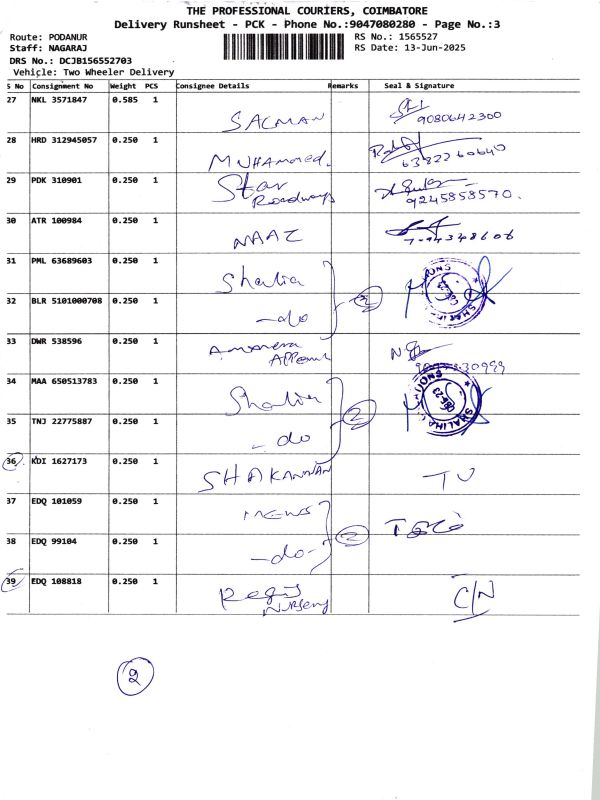 THE PROFESSIONAL COURIERS, COIMBATORE
Delivery Runsheet - PCK - Phone No.:9047080280 - Page No.:3
Route: PODANUR RS No.: 1565527
Staff: NAGARAJ RS Date: 13-Jun-2025
DRS No.: DCJB156552703
Vehicle: Two Wheeler Delivery
S No Consignment No Weight PCS Consignee Details Remarks Seal & Signature
27 NKL 3571847 0.585 1 SACMAN 9080642300
28 HRD 312945057 0.250 1 MUHAMMED. 6382260640
29 PDK 310901 0.250 1 Star Roadways 9245858570.
30 ATR 100984 0.250 1 NAAZ
31 PML 63689603 0.250 1 Shalia
32 BLR 5101000708 0.250 1 -do 2
33 DWR 538596 0.250 1
34 MAA 650513783 0.250 1 Shalia
35 TNJ 22775887 0.250 1 - do 2
36 KDI 1627173 0.250 1 SHAKANNAN
37 EDQ 101059 0.250 1 MEWS
38 EDQ 99104 0.250 1 -do- 2
39 EDQ 108818 0.250 1 Regis Nursery C/N
2